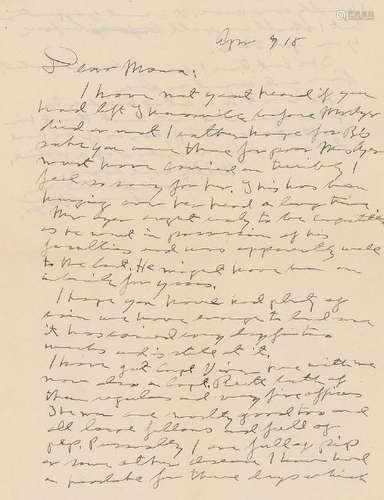 Apr 9 18
Dear Mama:
I have not yet heard if you
had left Thomasville before Mr Ayer
died or not I rather hope for B's
sake you were there for poor Mrs Ayer
must have carried on terribly I
feel so sorry for her. This has been
hanging over her head a long time.
Mr Ayer ought only to be
as he went in possession of his
faculties and was apparently well
to the last. He might have been an
for years.
I hope you have had plenty of
rain we have enough to lend as
it has rained every day for two
weeks and is still at it.
I have got Capt Viner here with me
now also a Capt. both of
them regulars and very fine officers
The men are mostly good too and
all large fellows and full of
pep. Possibly I am full of pip
or some other disease I have had
a for three days which